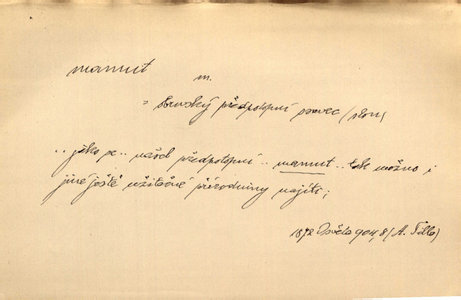 mamut m.
= obrovský předpotopní savec (slon)
.. jako se .. našel předpotopní .. mamut .. tak možno i
jiné ještě užitečné přírodniny najíti;
1872 Osvěta 904, 8 (A. Tille)